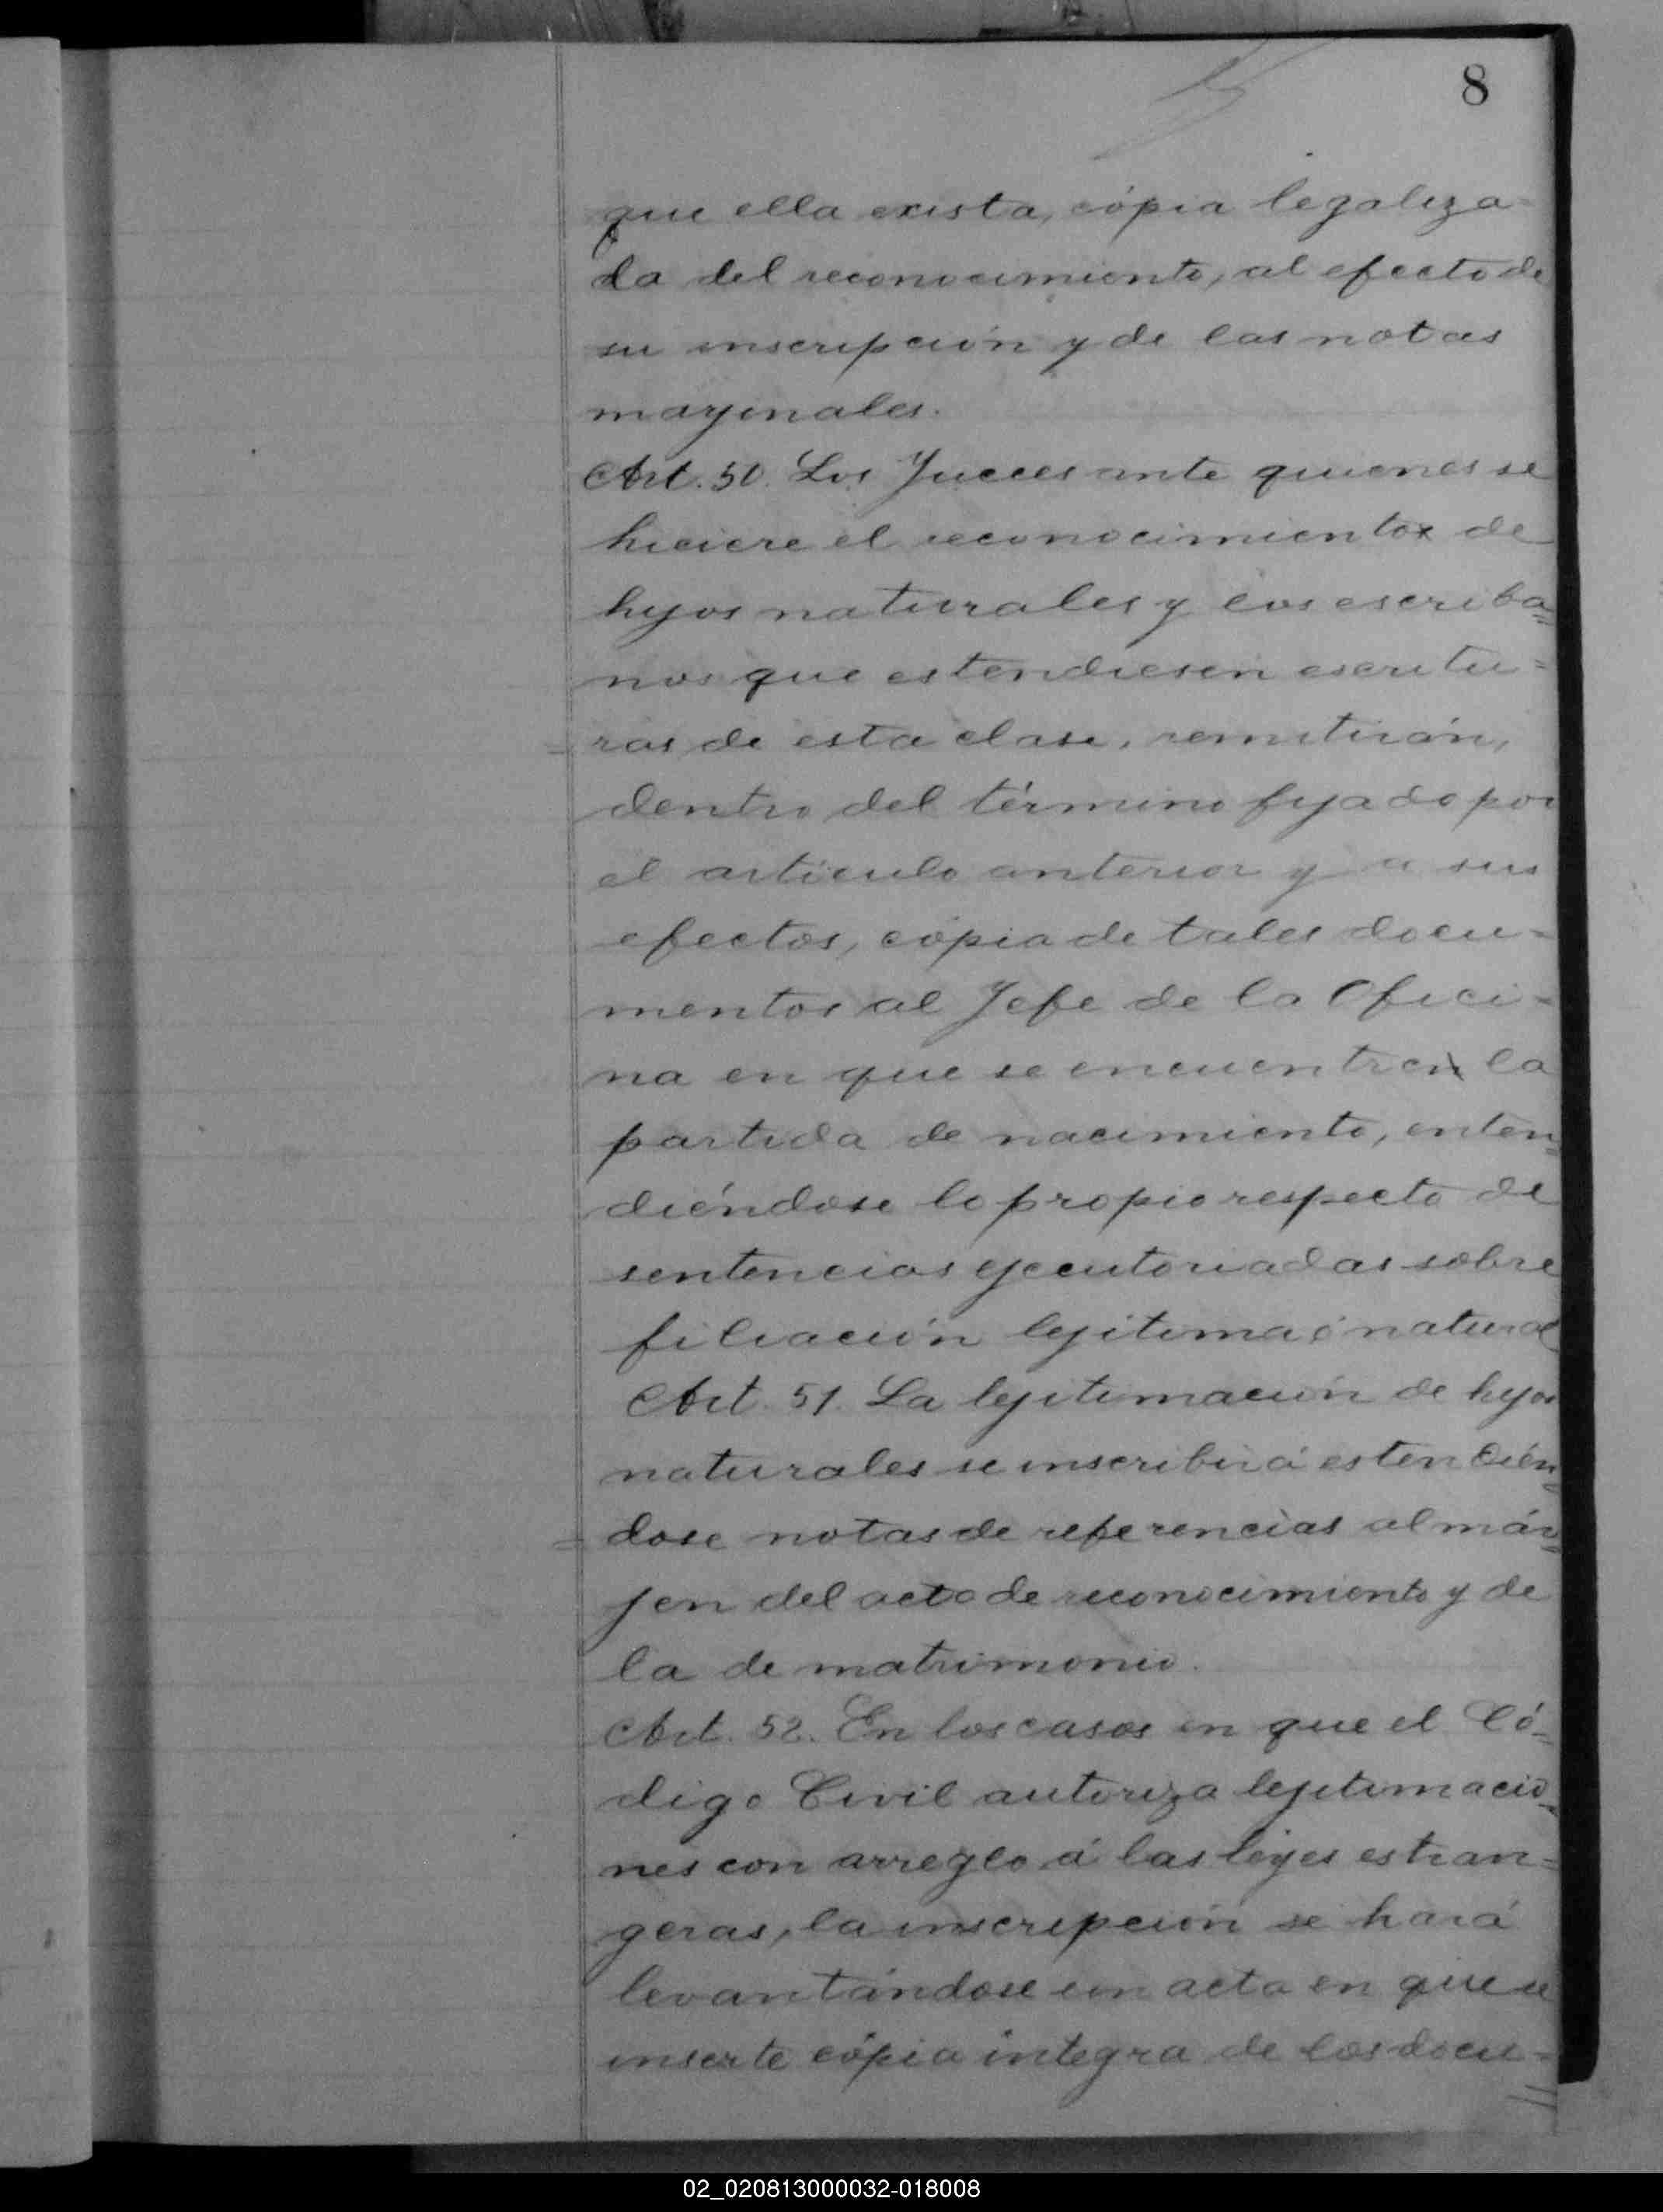 8
que ella exista, cópia legaliza=
da del reconocimiento, al efecto de
su inscripción y de las notas
marjinales.
Art. 50. Los Jueces ante quienes se
hiciere el reconocimiento de
hijos naturales y los escriba=
nos que estendiesen escritu=
=ras de esta clase, remitirán,
dentro del término fijado por
el artículo anterior y a sus
efectos, cópia de tales docu=
mentos al Jefe de la Ofici=
na en que se encuentre la
partida de nacimiento, enten=
diéndose lo propio respecto de
sentencias ejecutoriadas sobre
filiación lejitima ó natural
Art. 51. La lejitimación de hijos
naturales se inscribirá estendién=
=dose notas de referencias al már=
jen del acto de reconocimiento y de
la de matrimonio.
Art. 52. En los casos en que el Có=
digo Civil autoriza lejitimacio=
nes con arreglo á las leyes estran=
geras, la inscripción se hará
levantándose un acta en que se
inserte cópia integra de los docu=
02_020813000032-018008